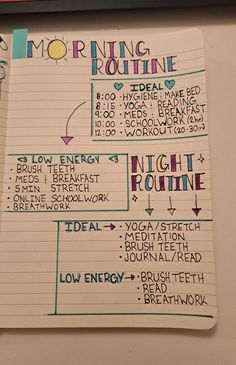 MORNING
ROUTINE
♡ IDEAL ♡
8:00 · HYGIENE + MAKE BED
8:15 · YOGA + READING
9:00 · MEDS + BREAKFAST
10:00 · SCHOOLWORK (2hr)
12:00 · WORKOUT (20-30m)
LOW ENERGY
· BRUSH TEETH
· MEDS + BREAKFAST
· 5 MIN STRETCH
· ONLINE SCHOOLWORK
· BREATHWORK
NIGHT
ROUTINE
IDEAL → · YOGA/STRETCH
· MEDITATION
· BRUSH TEETH
· JOURNAL/READ
LOW ENERGY → · BRUSH TEETH
· READ
· BREATHWORK